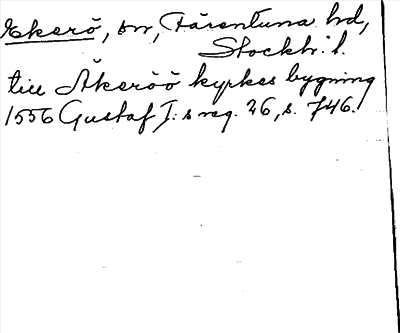 Ekerö, sn, Färentuna hd,
Stockh: l.
till Åkeröö kyrkes bygning
1556 Gustaf I:s reg. 26, s. 746.